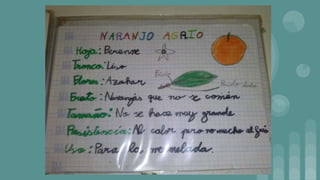 NARANJO AGRIO
Hoja: Perenne
Tronco: Liso
Flores: Azahar
Fruto: Naranjas que no se comen
Tamaño: No se hace muy grande
Resistencia: Al calor pero no mucho al frío
Uso: Para la mermelada.